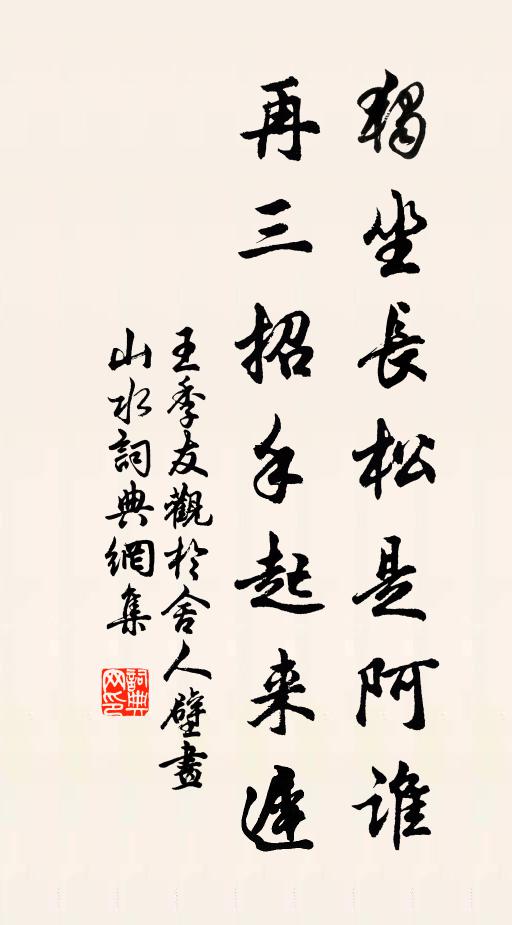 獨坐長松是阿誰
再三招手起来遲
王季友觀於舍人壁畫
山水詞典網集
詞典网印